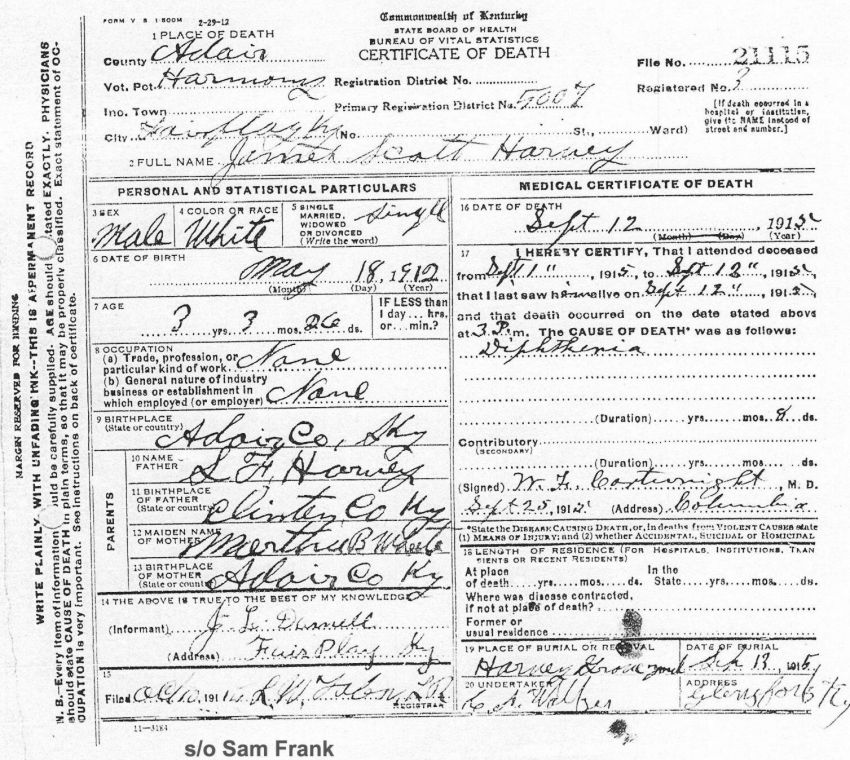 FORM V S 1-500M 2-29-12
Commonwealth of Kentucky
STATE BOARD OF HEALTH
BUREAU OF VITAL STATISTICS
CERTIFICATE OF DEATH
1 PLACE OF DEATH
County Adair
Vot. Pct. Harmony
Inc. Town
City Fairplay Ky No. St., Ward)
Registration District No.
Primary Registration District No. 5007
File No. 21115
Registered No. 3
[If death occurred in a hospital or institution, give its NAME instead of street and number.]
2 FULL NAME James Scott Harvey
PERSONAL AND STATISTICAL PARTICULARS
3 SEX Male
4 COLOR OR RACE White
5 SINGLE MARRIED, WIDOWED OR DIVORCED (Write the word) Single
6 DATE OF BIRTH May 18, 1912
(Month) (Day) (Year)
7 AGE 3 yrs. 3 mos. 26 ds.
IF LESS than 1 day... hrs. or... min.?
8 OCCUPATION
(a) Trade, profession, or particular kind of work None
(b) General nature of industry business or establishment in which employed (or employer) None
9 BIRTHPLACE (State or country) Adair Co, Ky
PARENTS
10 NAME FATHER S F Harvey
11 BIRTHPLACE OF FATHER (State or country) Clinton Co Ky
12 MAIDEN NAME OF MOTHER B
13 BIRTHPLACE OF MOTHER (State or country) Adair Co Ky
14 THE ABOVE IS TRUE TO THE BEST OF MY KNOWLEDGE
(Informant)
(Address) Fair Play Ky
15
Filed 191
REGISTRAR
11-3184
MEDICAL CERTIFICATE OF DEATH
16 DATE OF DEATH Sept 12, 1915
(Month) (Day) (Year)
17 I HEREBY CERTIFY, That I attended deceased
from Sept 1", 1915, to Sept 12", 1915,
that I last saw him alive on Sept 12", 1915,
and that death occurred on the date stated above
at 3 P.m. The CAUSE OF DEATH* was as follows:
Diphtheria
(Duration) yrs. mos. 8 ds.
Contributory
(SECONDARY)
(Duration) yrs. mos. ds.
(Signed) W. F. Cartwright, M. D.
Sept 25, 191 (Address) Columbia
*State the DISEASE CAUSING DEATH, or, in deaths from VIOLENT CAUSES state
(1) MEANS OF INJURY; and (2) whether ACCIDENTAL, SUICIDAL or HOMICIDAL
18 LENGTH OF RESIDENCE (FOR HOSPITALS, INSTITUTIONS, TRANSIENTS OR RECENT RESIDENTS)
At place of death yrs. mos. ds. In the State yrs. mos. ds.
Where was disease contracted, if not at place of death?
Former or usual residence
19 PLACE OF BURIAL OR REMOVAL Harvey
DATE OF BURIAL Sept 13, 1915
20 UNDERTAKER
ADDRESS Glensfork Ky
MARGIN RESERVED FOR BINDING
WRITE PLAINLY WITH UNFADING INK--THIS IS A PERMANENT RECORD
N. B. Every item of information should be carefully supplied. AGE should stated EXACTLY. PHYSICIANS
should state CAUSE OF DEATH in plain terms, so that it may be properly classified. Exact statement of OC-
CUPATION is very important. See instructions on back of certificate.
s/o Sam Frank